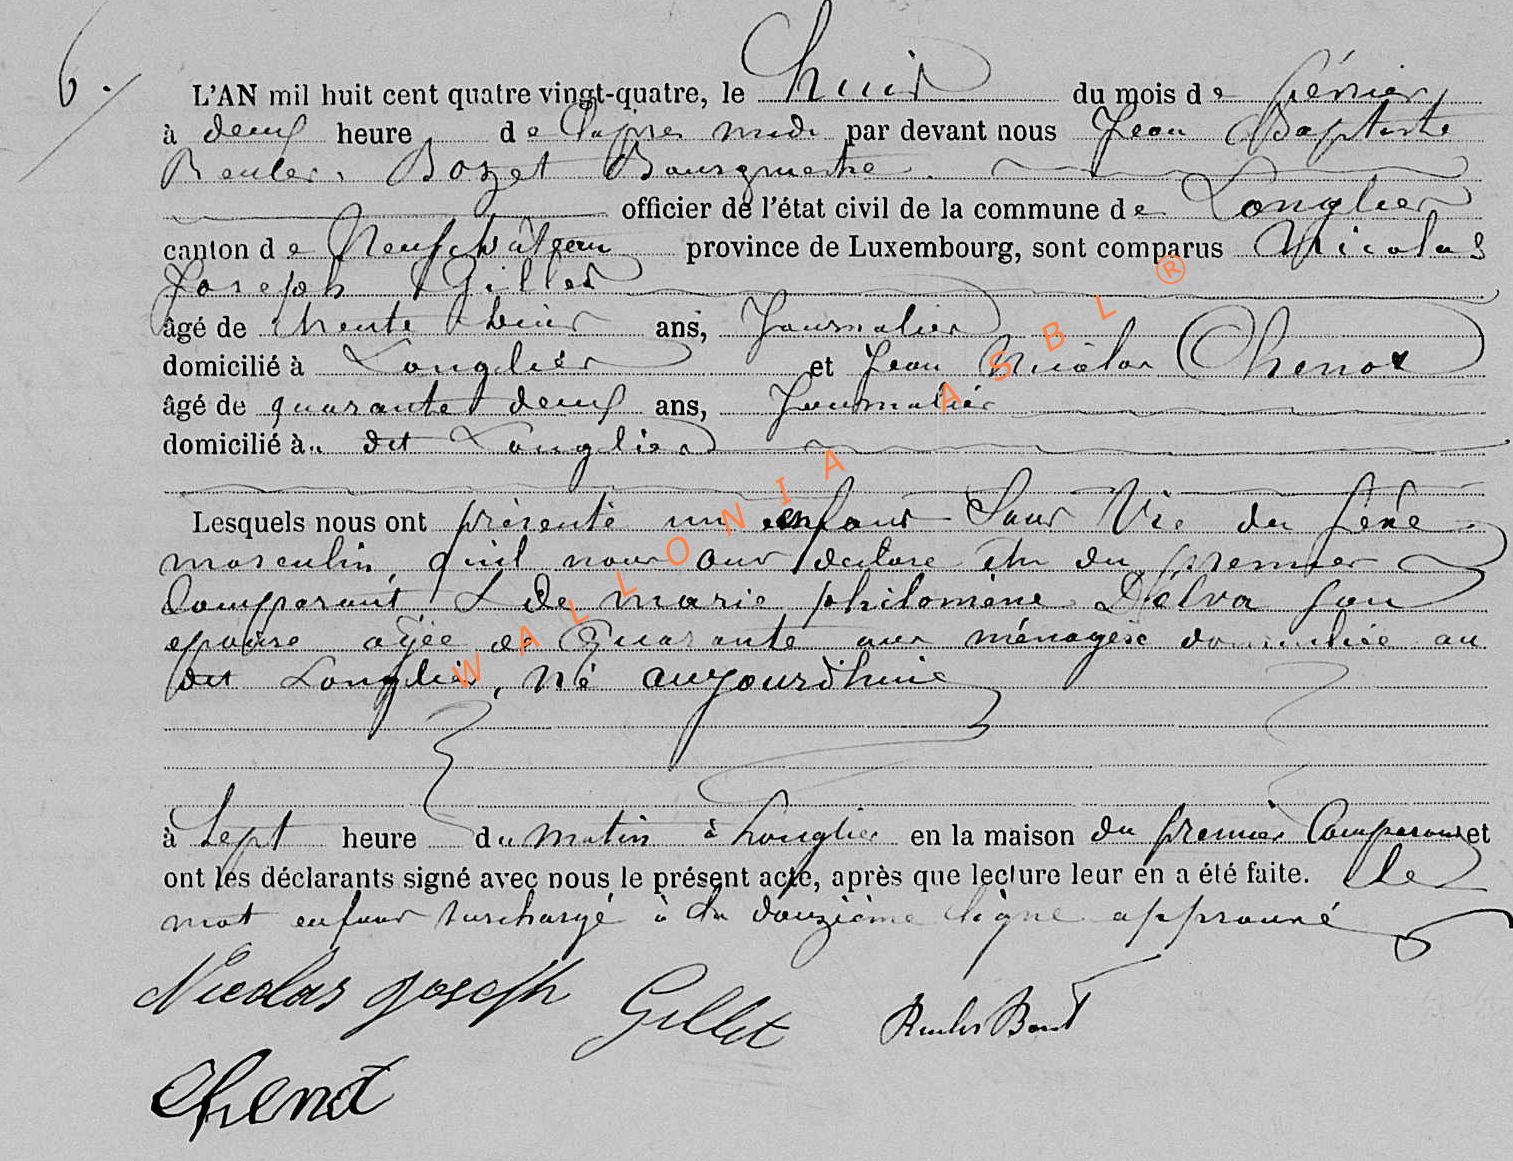 6.
L'AN mil huit cent quatre vingt-quatre, le huit du mois de février,
à deux heure de l'après midi par devant nous Jean Baptiste
Reuler Bozet Bourgmestre.
officier de l'état civil de la commune de Longlier
canton de Neufchâteau province de Luxembourg, sont comparus Nicolas
Joseph Gillet
âgé de trente huit ans, Journalier
domicilié à Longlier et Jean Nicolas Chenot
âgé de quarante deux ans, Journalier
domicilié à dit Longlier
Lesquels nous ont présenté un enfant Sans Vie du sexe
masculin, qu'il nous ont déclare être du premier
Comparant & de marie philomène Délva son
épouse agée de Quarante ans ménagère domiciliée au
dit Longlier, né aujourdhuie
à Sept heure du Matin à Longlier en la maison du premier Comparant et
ont les déclarants signé avec nous le présent acte, après que lecture leur en a été faite. Le
mot enfant surchargé à la douzième ligne approuvé
Nicolas Joseph Gillet
Chenot
WALLONIA ASBL ®